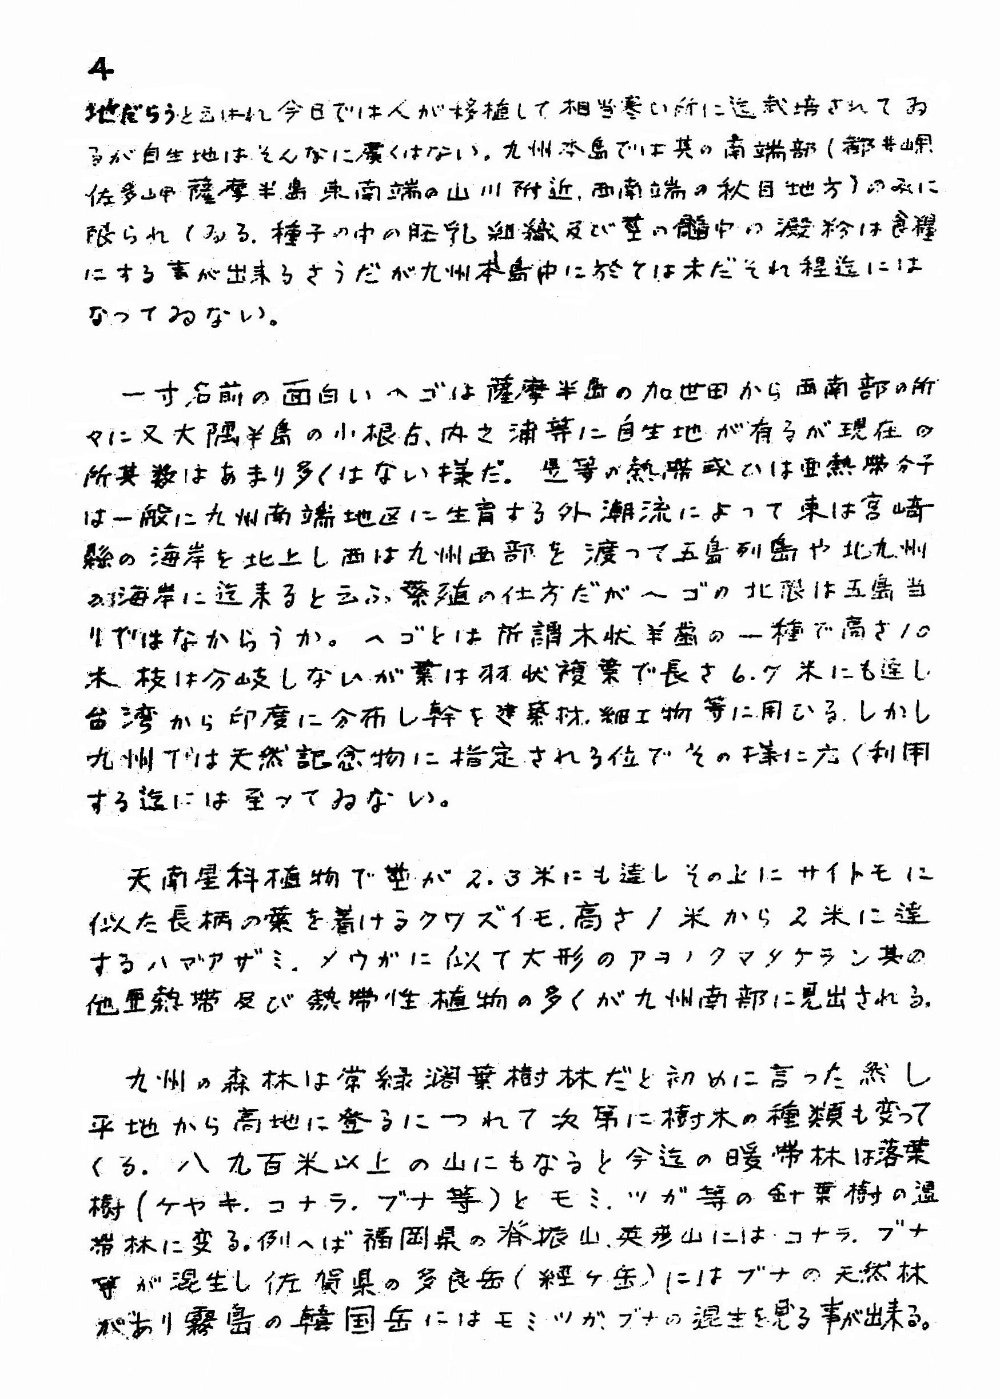 4
地だらうと云はれ今日では人が移植して相当寒い所に迄栽培されてゐ
るが自生地はそんなに広くはない。九州本島では其の南端部(都井岬
佐多岬 薩摩半島東南端の山川附近、西南端の秋目地方)のみに
限られてゐる。種子の中の胚乳組織及び茎の髄中の澱粉は食糧
にする事が出来るさうだが九州本島中に於ては未だそれ程迄には
なってゐない。
一寸名前の面白いヘゴは薩摩半島の加世田から西南部の所
々に又大隅半島の小根占、内之浦等に自生地が有るが現在の
所其数はあまり多くはない様だ。是等の熱帯或ひは亜熱帯分子
は一般に九州南端地区に生育する外潮流によって東は宮崎
縣の海岸を北上し西は九州西部を渡って五島列島や北九州
の海岸に迄来ると云ふ繁殖の仕方だがヘゴの北限は五島当
りではなからうか。ヘゴとは所謂木状羊歯の一種で高さ10
米、枝は分岐しないが葉は羽状複葉で長さ6.7米にも達し
台湾から印度に分布し幹を建築材、細工物等に用ひる。しかし
九州では天然記念物に指定される位でその様に広く利用
する迄には至ッてゐない。
天南星科植物で茎が2.3米にも達しその上にサイトモに
似た長柄の葉を着けるクワズイモ、高さ1米から2米に達
するハマアザミ、メウガに似て大形のアヲノクマタケラン其の
他亜熱帯及び熱帯性植物の多くが九州南部に見出される。
九州の森林は常緑濶葉樹林だと初めに言った然し
平地から高地に登るにつれて次第に樹木の種類も変って
くる。八九百米以上の山にもなると今迄の暖帯林は落葉
樹(ケヤキ.コナラ.ブナ等)とモミ.ツガ等の針葉樹の温
帯林に変る。例へば福岡県の脊振山、英彦山にはコナラ.ブナ
等が混生し佐賀県の多良岳(経ヶ岳)にはブナの天然林
があり霧島の韓国岳にはモミツガ、ブナの混生を見る事が出来る。